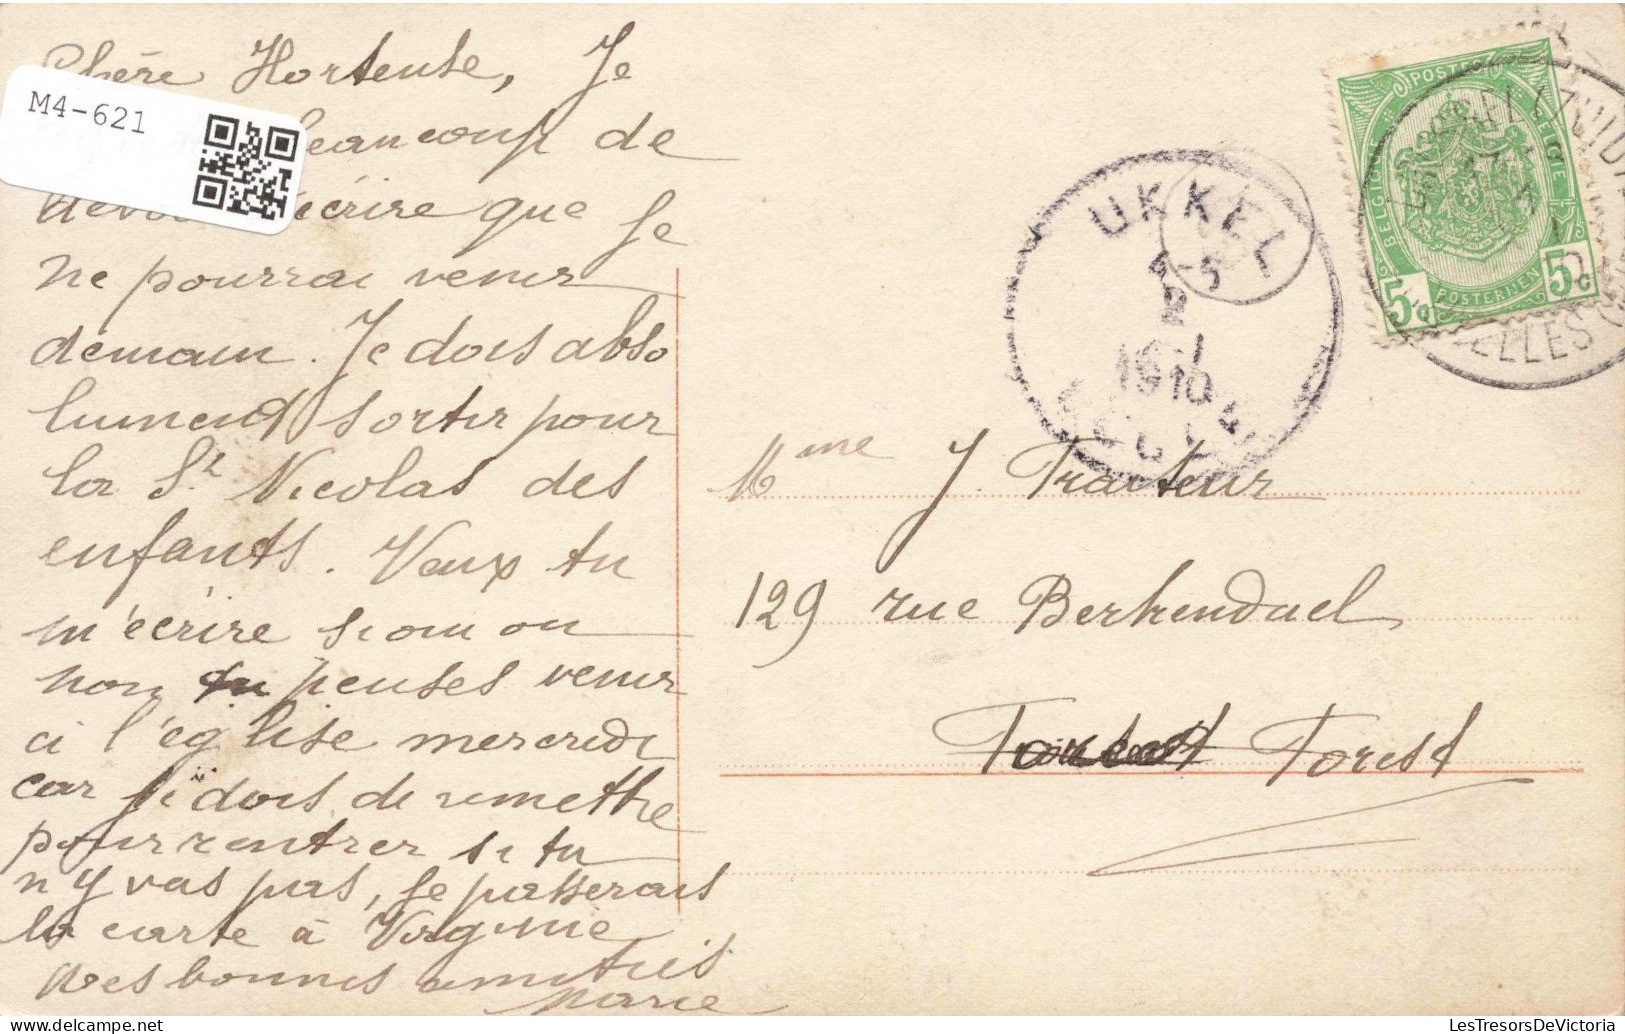 Chère Hortense, Je
M4-621
beaucoup de
écrire que je
ne pourrai venir
demain. Je dois abso
lument sortir pour
la St Nicolas des
enfants. Veux tu
m'écrire si oui ou
non tu penses venir
à l'église mercredi
car je dois de remettre
pour rentrer si tu
n'y vas pas, je passerais
la carte à Virginie
Mes bonnes amitiés
Marie
POSTES
BELGIQUE
BELGIE
POSTERIJEN
5c 5c
UKKEL
1910
Mme J. Traiteur
129 rue Berkendael
Forest
LesTresorsDeVictoria.com